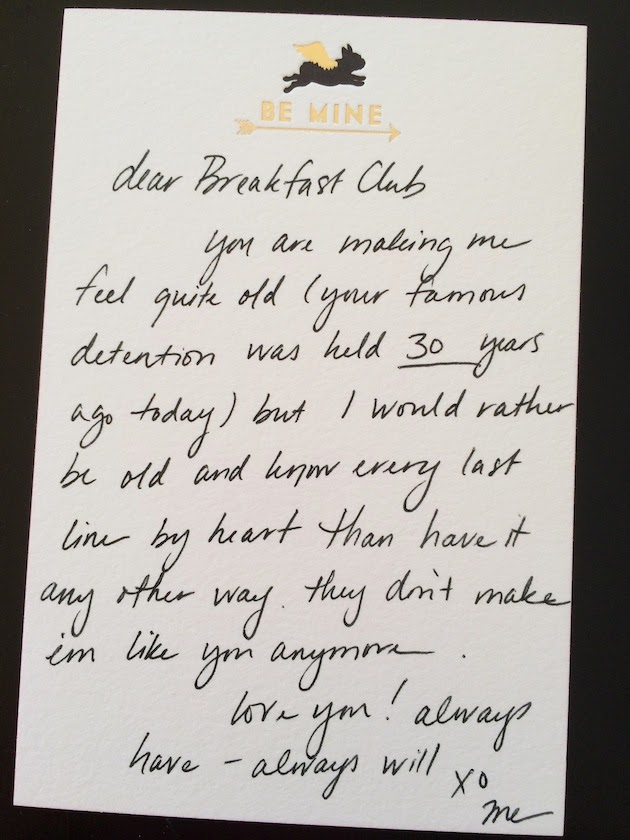 BE MINE
dear Breakfast Club
you are making me
feel quite old (your famous
detention was held 30 years
ago today) but I would rather
be old and know every last
line by heart than have it
any other way. they don't make
em like you anymore.
love you! always
have - always will
xo
me